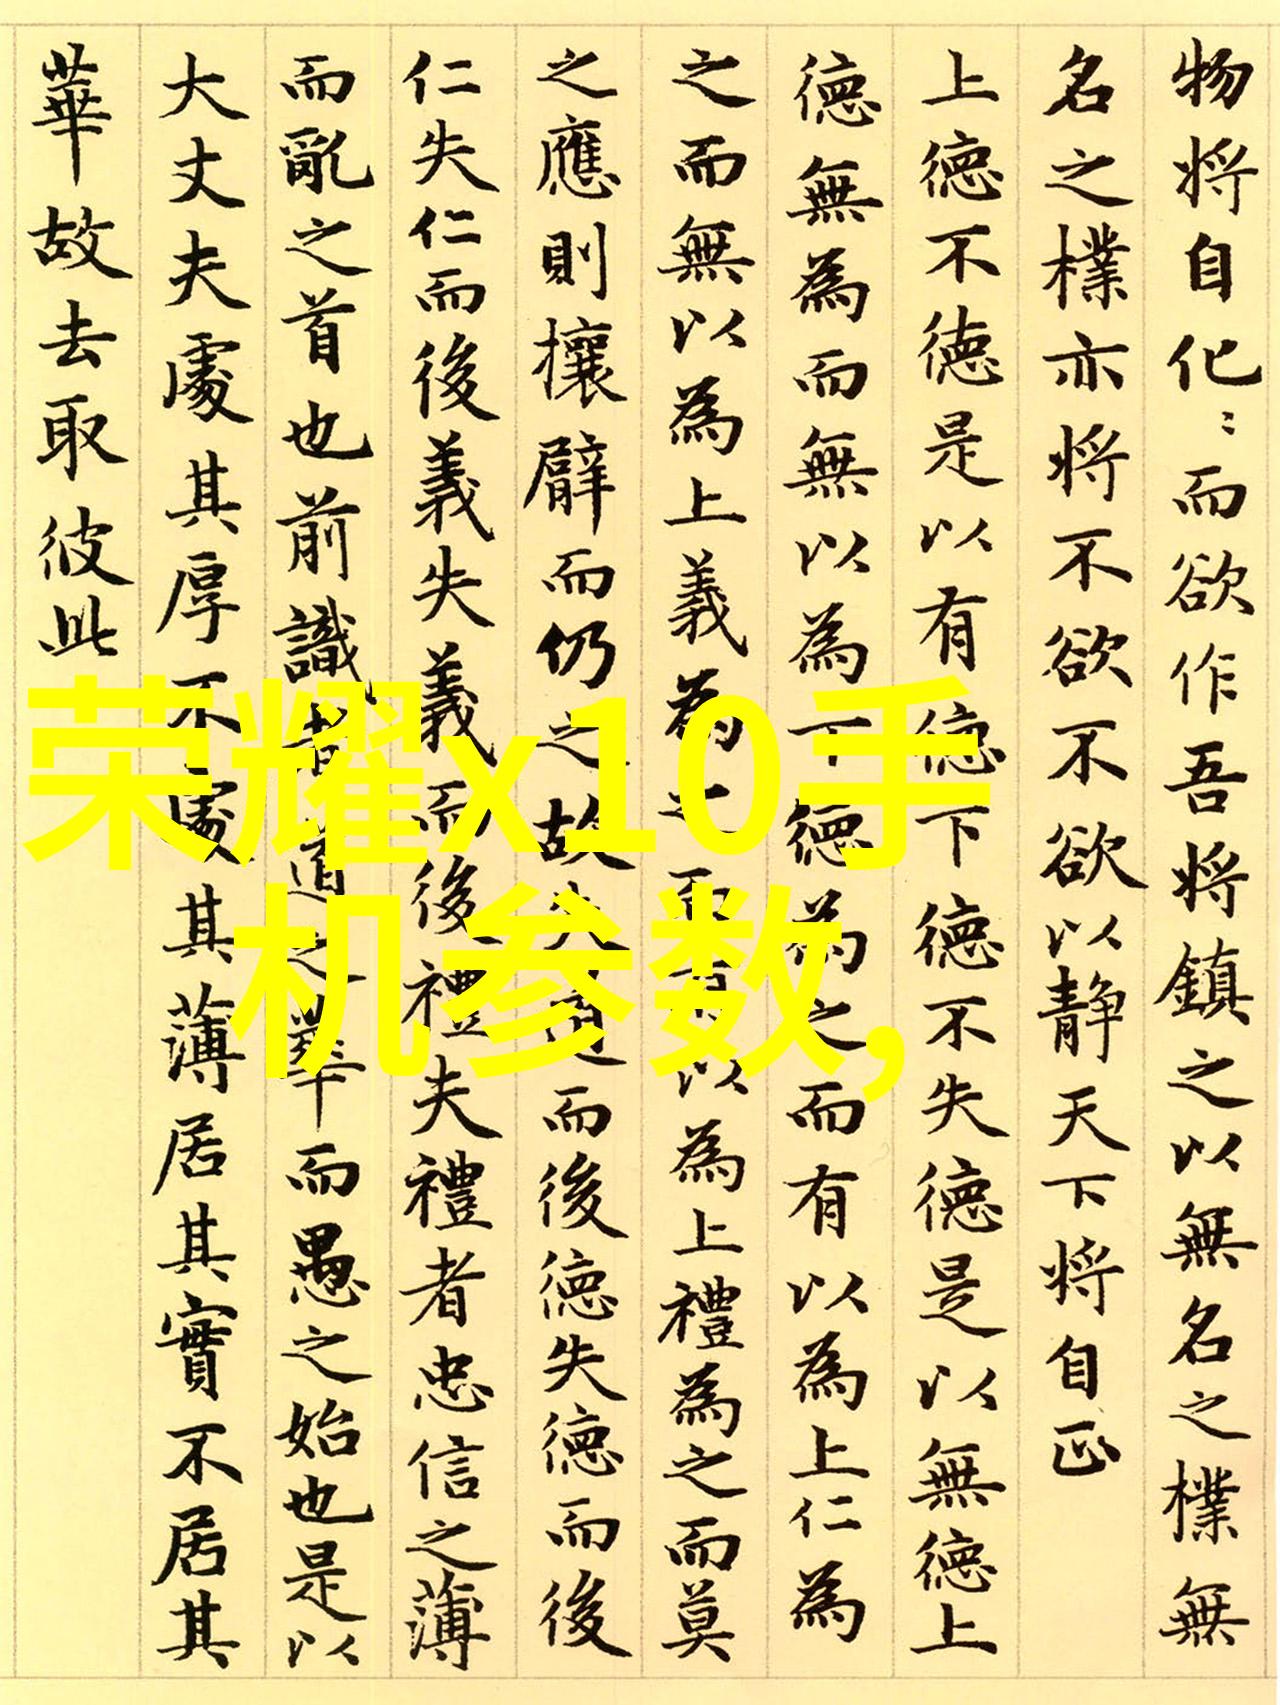 物将自化〻而欲作吾将鎮之以無名之樸無
名之樸亦将不欲不欲以静天下将自正
上德不德是以有德下德不失德是以無德上
德無為而無以為下德為之而有以為上仁為
之而無以為上義為之而有以為上禮為之而莫
之應則攘臂而仍之故失道而後德失德而後
仁失仁而後義失義而後禮夫禮者忠信之薄
而亂之首也前識者道之華而愚之始也是以
大丈夫處其厚不處其薄居其實不居其
華故去取彼此
荣耀x10手
机参数,